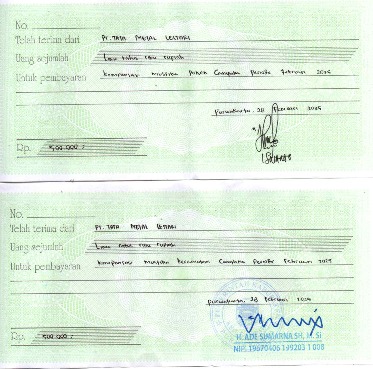 No.
Telah terima dari PT. TATA METAL LESTARI
Uang sejumlah Lima ratus ribu rupiah
Untuk pembayaran Kompensasi Periode Februari 2025
Purwakarta, 28 Februari 2025
Rp. 500.000,-
No.
Telah terima dari PT. TATA METAL LESTARI
Uang sejumlah Lima ratus ribu rupiah
Untuk pembayaran Kompensasi Kecamatan Campaka Periode Februari 2025
Purwakarta, 28 Februari 2025
Rp. 500.000,-
H. ADE SUMARNA SH, M.SI
NIP. 19670406 199203 1 008